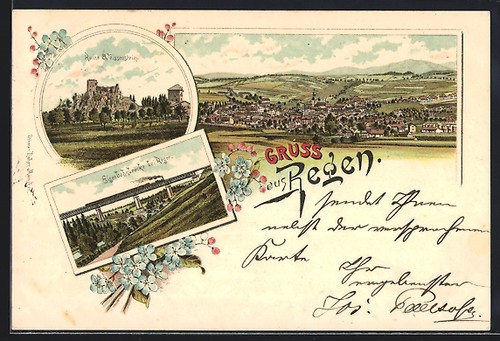 Ruine Weissenstein
Eisenbahnbrücke bei Regen
GRUSS
aus Regen.
sendet Ihnen
nebst der versprochenen
Karte
Ihr
ergebenster
Jos.